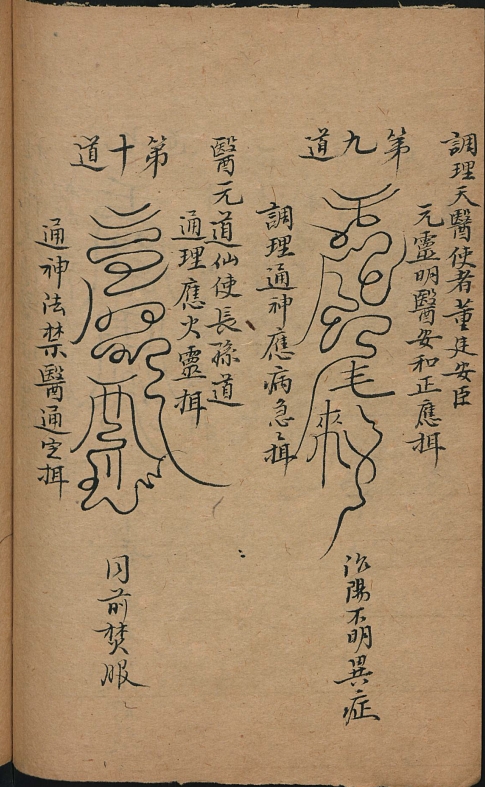 調理天醫使者董廷安臣
元靈明醫安和正應揖
第九道
調理通神應病急急揖
治陽不明異症
醫元道仙使長孫道
通理應火靈揖
第十道
通神法禁醫通定揖
同前焚服